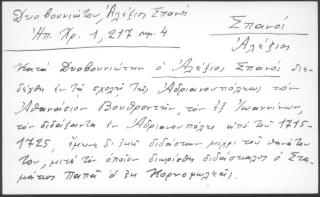 Δυοβουνιώτου, Αλέξιος Σπανό
Ηπ. Χρ. 1, 217 σημ. 4
Σπανός
Αλέξιος
Κατά Δυοβουνιώτην ο Αλέξιος Σπανός διε-
δέχθη εν τη σχολή της Αδριανουπόλεως τον
Αθανάσιον τον εξ Ιωαννίνων,
τον διδάξαντα εν Αδριανουπόλει από του 1715-
1725, έμεινε δε εκεί διδάσκων μέχρι του θανάτου
του, μετά τον οποίον διωρίσθη διδάσκαλος ο Στα-
μάτιος Παπά ο εκ